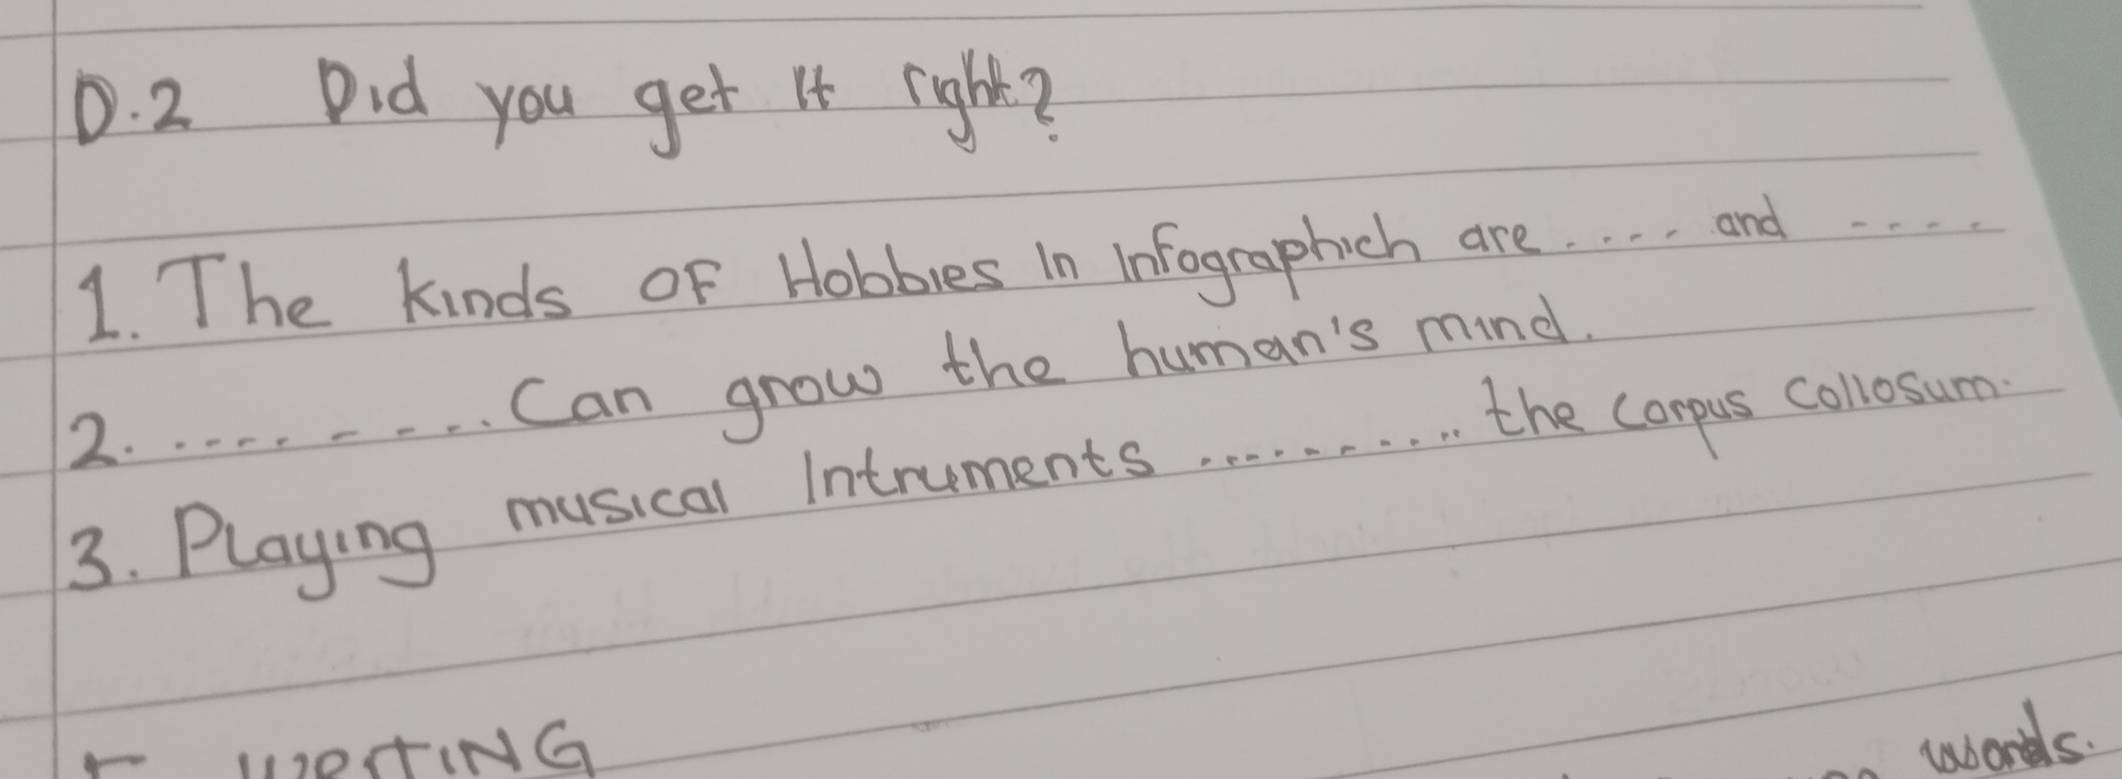 D.2 Did you get it right?
1. The kinds of Hobbies in infographich are .... and ....
2. .......... Can grow the human's mind.
3. Playing musical intruments .......... the corpus collosum.
WRITING
words.